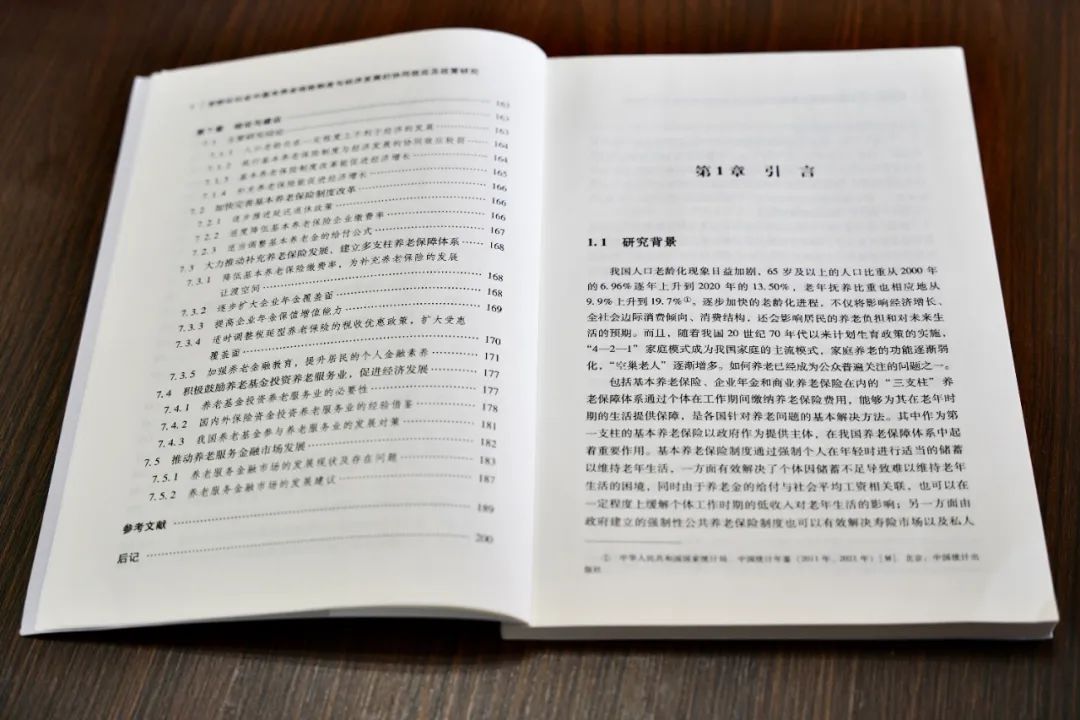 老龄化社会中基本养老保险制度与经济发展的协同效应及政策研究
第7章 结论与建议 163
7.1 主要研究结论 163
7.1.1 人口老龄化在一定程度上不利于经济的发展 163
7.1.2 现行基本养老保险制度与经济发展的协同效应较弱 164
7.1.3 基本养老保险制度改革能促进经济增长 164
7.1.4 补充养老保险能促进经济增长 165
7.2 加快完善基本养老保险制度改革 166
7.2.1 逐步推进延迟退休政策 166
7.2.2 适度降低基本养老保险企业缴费率 166
7.2.3 适当调整基本养老金的给付公式 167
7.3 大力推动补充养老保险发展,建立多支柱养老保障体系 168
7.3.1 降低基本养老保险缴费率,为补充养老保险的发展
让渡空间 168
7.3.2 逐步扩大企业年金覆盖面 168
7.3.3 提高企业年金保值增值能力 169
7.3.4 适时调整税延型养老保险的税收优惠政策,扩大受惠
覆盖面 170
7.3.5 加强养老金融教育,提升居民的个人金融素养 171
7.4 积极鼓励养老基金投资养老服务业,促进经济发展 177
7.4.1 养老基金投资养老服务业的必要性 177
7.4.2 国内外保险资金投资养老服务业的经验借鉴 178
7.4.3 我国养老基金参与养老服务业的发展对策 181
7.5 推动养老服务金融市场发展 182
7.5.1 养老服务金融市场的发展现状及存在问题 183
7.5.2 养老服务金融市场的发展建议 187
参考文献 189
后记 200
第1章 引 言
1.1 研究背景
我国人口老龄化现象日益加剧,65岁及以上的人口比重从2000年
的6.96%逐年上升到2020年的13.50%,老年抚养比重也相应地从
9.9%上升到19.7%①,逐步加快的老龄化进程,不仅将影响经济增长、
全社会边际消费倾向、消费结构,还会影响居民的养老负担和对未来生
活的预期。而且,随着我国20世纪70年代以来计划生育政策的实施,
“4—2—1”家庭模式成为我国家庭的主流模式,家庭养老的功能逐渐弱
化,“空巢老人”逐渐增多。如何养老已经成为公众普遍关注的问题之一。
包括基本养老保险、企业年金和商业养老保险在内的“三支柱”养
老保障体系通过个体在工作期间缴纳养老保险费用,能够为其在老年时
期的生活提供保障,是各国针对养老问题的基本解决方法。其中作为第
一支柱的基本养老保险以政府作为提供主体,在我国养老保障体系中起
着重要作用。基本养老保险制度通过强制个人在年轻时进行适当的储蓄
以维持老年生活,一方面有效解决了个体因储蓄不足导致难以维持老年
生活的困境,同时由于养老金的给付与社会平均工资相关联,也可以在
一定程度上缓解个体工作时期的低收入对老年生活的影响;另一方面由
政府建立的强制性公共养老保险制度也可以有效解决寿险市场以及私人
① 中华人民共和国国家统计局. 中国统计年鉴(2011年、2021年)[M]. 北京:中国统计出
版社